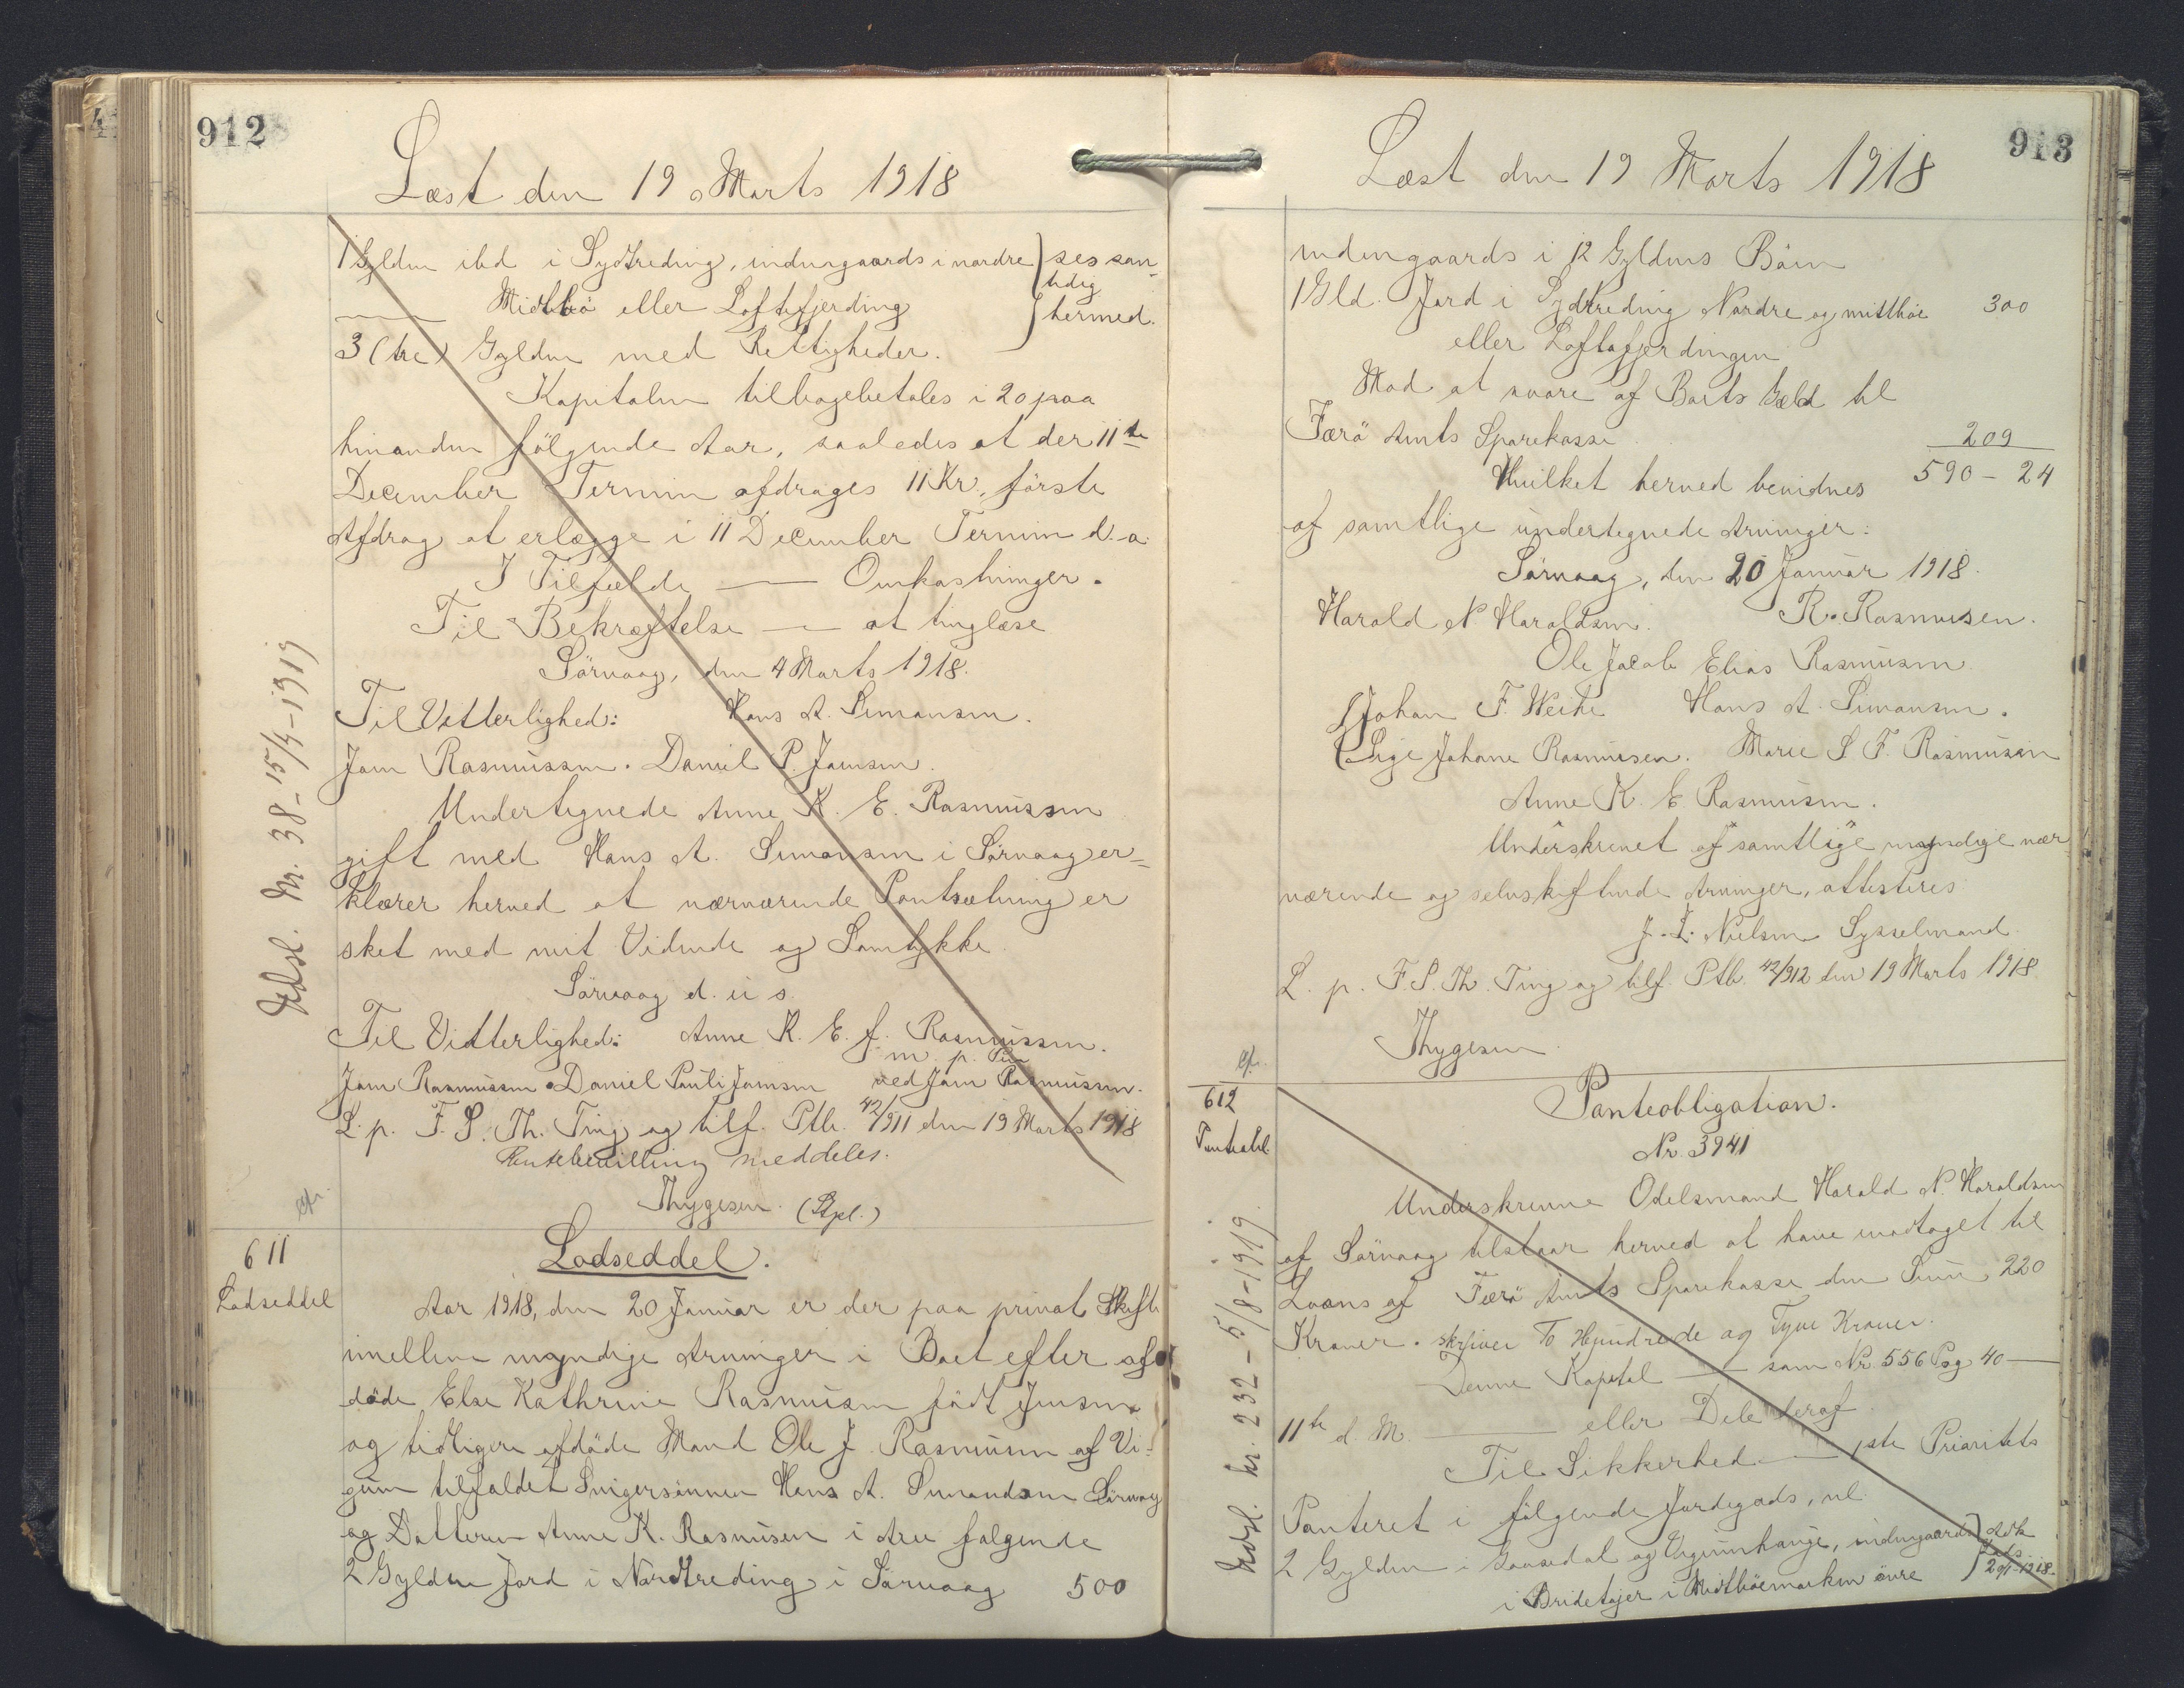 912
Læst den 19 Marts 1918
1 Gylden ibd i Sydtreding, indengaards i nordre } ses sam-
tidig
Midtbö eller Loftefjerding } hermed.
3 (tre) Gylden med Rettigheder.
Kapitalen tilbagebetales i 20 paa
hinanden fölgende Aar, saaledes at der 11te
December Termin afdrages 11 Kr., förste
Afdrag at erlægge i 11 December Termin d. a.
I Tilfælde — Omkostninger.
Til Bekræftelse — at tinglæse
Sörvaag, den 4 Marts 1918.
Til Vitterlighed: Hans A. Simonsen.
Joen Rasmussen. Daniel P. Joensen.
Undertegnede Anne K. E. Rasmussen
gift med Hans A. Simonsen i Sörvaag er-
klærer herved at nærværende Pantsætning er
sket med mit Vidende og Samtykke.
Sörvaag d. u. s.
Til Vitterlighed: Anne K. E. f. Rasmussen.
m. p. Pen
Joen Rasmussen. Daniel Pauli Joensen ved Joen Rasmussen.
L. p. F. S. Th. Ting og tilf. Ptb. 42/911 den 19 Marts 1918
Rentebevilling meddeles.
Thygesen. (Stpl.)
Udsl. Nr. 38 - 15/4 - 1919
cfr.
611
Lodseddel
Lodseddel.
Aar 1918, den 20 Januar er der paa privat Skifte
imellem myndige Arvinger i Boet efter af-
döde Else Kathrine Rasmussen födt Jensen
og tidligere afdöde Mand Ole J. Rasmussen af Vi-
gum tilfaldet Svigersönnen Hans A. Simonsen Sörvaag
og Datteren Anne K. Rasmussen i Arv fölgende
2 Gylden Jord i Nordtreding i Sörvaag 500
913
Læst den 19 Marts 1918
indengaards i 12 Gyldens Böin
1 Gld. Jord i Sydtreding Nordre og mittböe 300
eller Loftafjerdingen
Mod at svare af Boets Gæld til
Færö Amts Sparekasse 209
Hvilket herved bevidnes 590 - 24
af samtlige undertegnede Arvinger:
Sörvaag, den 20 Januar 1918.
Harald N Haraldsen. R. Rasmussen.
Ole Jacob Elias Rasmussen.
Johan F. Weihe Hans A. Simonsen.
Johane Rasmussen. Marie S F. Rasmussen
Anne K. E. Rasmussen.
Underskrevet af samtlige myndige nær-
værende og selvskiftende Arvinger, attesteres
J. L. Nielsen Sysselmand.
L. p. F. S. Th. Ting og tilf. Ptb. 42/912 den 19 Marts 1918
Thygesen
cfr.
612
Panteobl.
Panteobligation.
Nr. 3941
Underskrevne Odelsmand Harald N. Haraldsen
af Sörvaag tilstaar herved at have modtaget til
Laans af Færö Amts Sparekasse den Sum, 220
Kroner. skriver To Hundrede og Tyve Kroner.
Denne Kapital — som Nr 556 Pag 40 —
11te d. M. — eller Dele deraf.
Til Sikkerhed — 1ste Prioritets
Panteret i fölgende Jordegods, nl.
2 Gylden i Gaasedal og, indengaards } Adk.
i i Midtböemarken övre } 29/1-1918.
Udsl. Nr. 232 - 5/8 - 1919